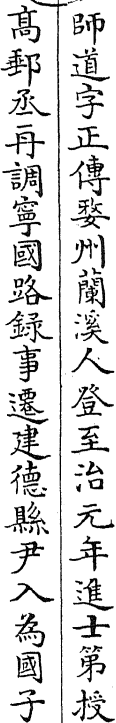 師道字正傳婺州蘭溪人登至治元年進士第授
高郵丞再調寧國路錄事遷建德縣尹入為國子